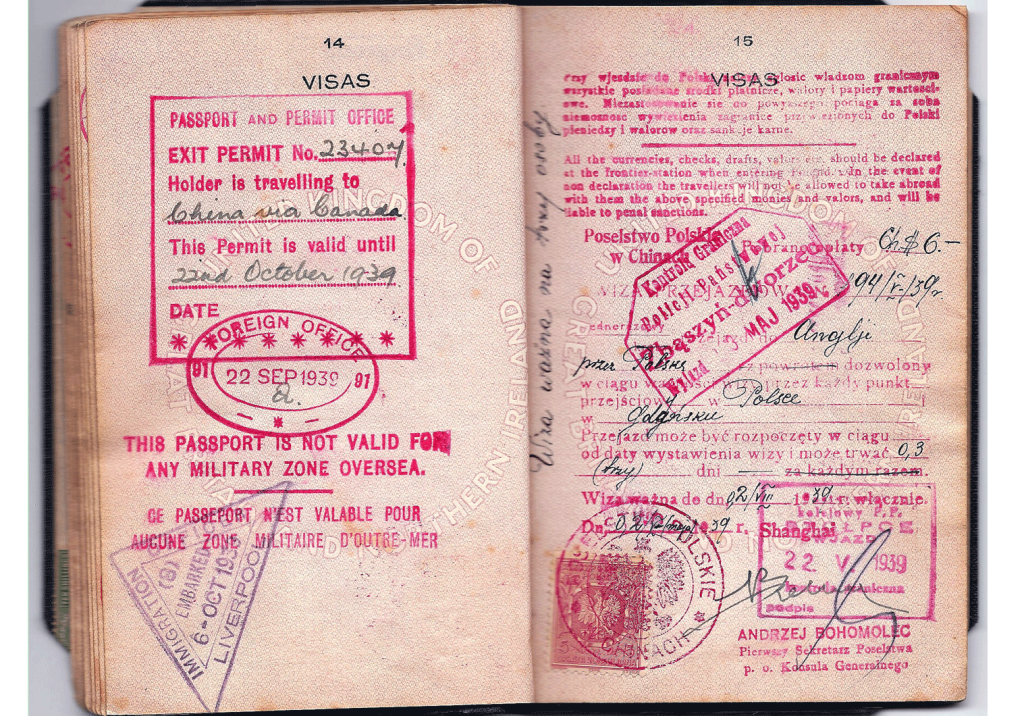 14
VISAS
PASSPORT AND PERMIT OFFICE
EXIT PERMIT No. 23407
Holder is travelling to
China via Canada
This Permit is valid until
22nd October 1939
DATE
* * * * * * * *
FOREIGN OFFICE
91 22 SEP 1939 91
a.
THIS PASSPORT IS NOT VALID FOR
ANY MILITARY ZONE OVERSEA.
CE PASSEPORT N'EST VALABLE POUR
AUCUNE ZONE MILITAIRE D'OUTRE-MER
IMMIGRATION
(8)
EMBARKED
6-OCT 1939
LIVERPOOL
15
VISAS
Przy wjeździe do Polski władzom granicznym
wszystkie posiadane środki płatnicze, walory i papiery wartości-
owe. Niezastosowanie się do powyższego pociąga za sobą
niemożność wywiezienia zagranicę przywiezionych do Polski
pieniędzy i walorów oraz sankcje karne.
All the currencies, checks, drafts, valors etc. should be declared
at the frontier-station when entering Poland. In the event of
non declaration the travellers will not be allowed to take abroad
with them the above specified monies and valors, and will be
liable to penal sanctions.
Wiza ważna na osoby
Poselstwo Polskie
w Chinach
Pobrano opłaty Ch$ 6.-
194/V-/39r.
Kontrola Graniczna
Zbąszyń-dworzec
MAJ 1939
Wyjazd
Anglji
przez Polskę z powrotem dozwolony
w ciągu ważności wizy przez każdy punkt
przejściowy w Polsce
w Gdańsku
Przejazd może być rozpoczęty w ciągu
od daty wystawienia wizy i może trwać 0,3
(trzy) dni za każdym razem.
Wiza ważna do dn. 02/VII 1939 r. włącznie.
Dn. 02 39 r, Shanghai
POLSKIE
CHINACH
22 V 1939
podpis
ANDRZEJ BOHOMOLEC
Pierwszy Sekretarz Poselstwa
p. o. Konsula Generalnego